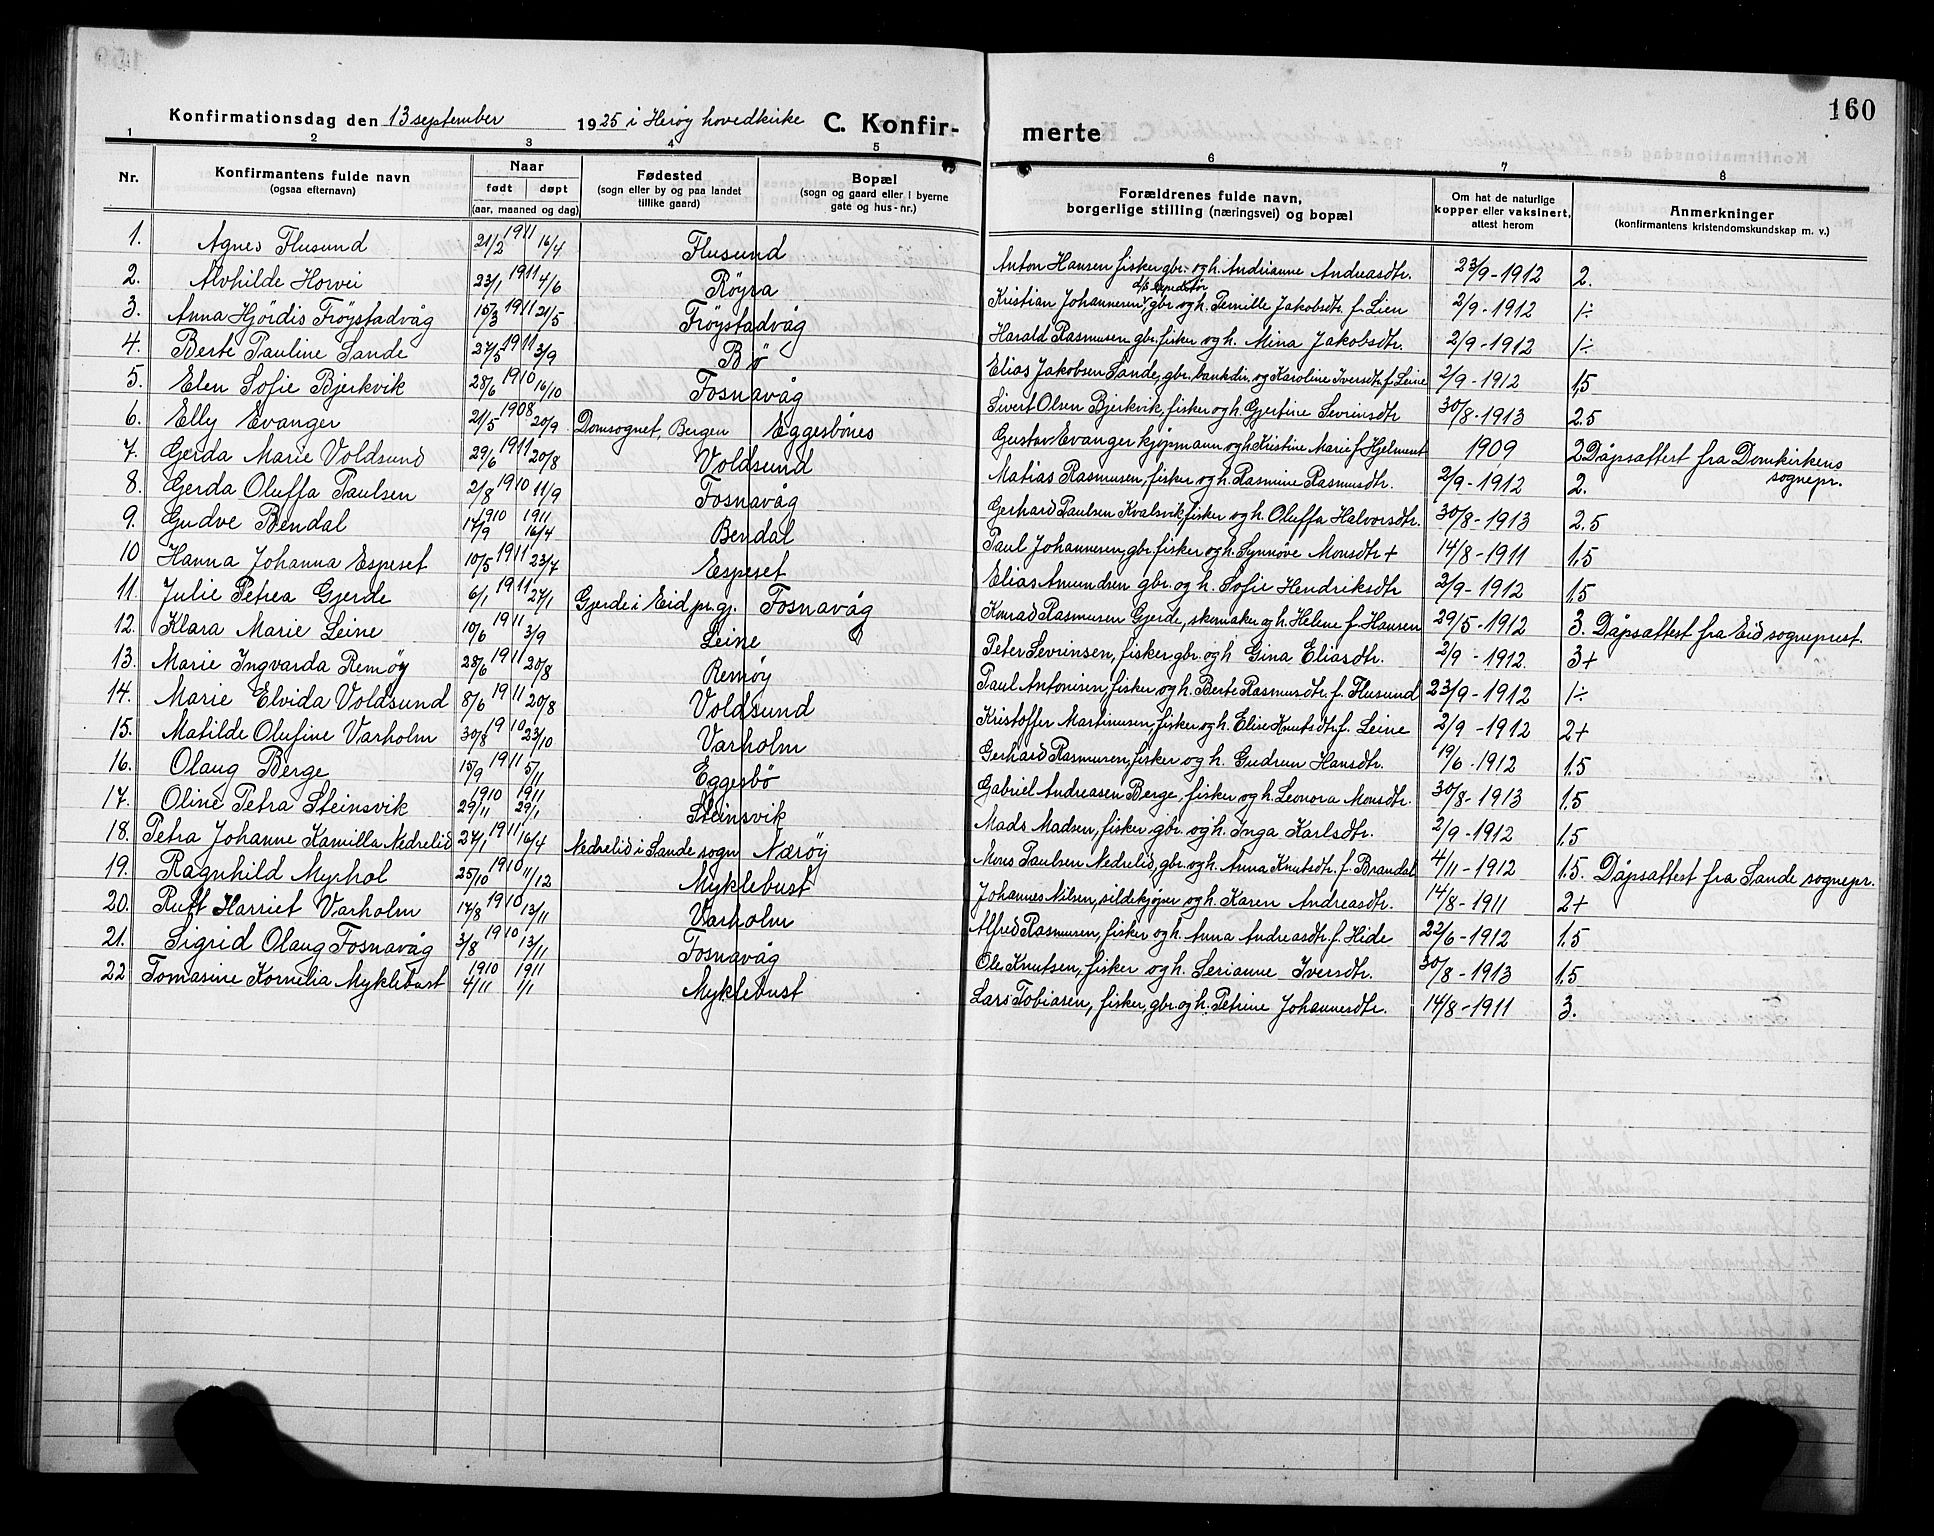 160
Konfirmationsdag den 13 september 1925 i Herøy hovedkirke C. Konfir- merte
1 2 3 4 5 6 7 8
Nr. Konfirmantens fulde navn (ogsaa efternavn) Naar født døpt (aar, maaned og dag) Fødested (sogn eller by og paa landet tillike gaard) Bopæl (sogn og gaard eller i byerne gate og hus-nr.) Forældrenes fulde navn, borgerlige stilling (næringsvei) og bopæl Om hat de naturlige kopper eller vaksinert, attest herom Anmerkninger (konfirmantens kristendomskundskap m. v.)
1. Agnes Flusund 21/2 1911 16/4 Flusund Anton Hansen fisker gbr. og h. Andrianne Andreasdtr. 23/9-1912 2.
2. Alvhilde Horvei 23/1 1911 4/6 Røyra Kristian Johannesen, gbr. og h. Pernille Jakobsdtr. f. Lien 2/9-1912 1÷
3. Anna Hjördis Fröystadvåg 15/3 1911 21/5 Fröystadvåg Harald Rasmusen gbr. fisker og h. Mina Jakobsdtr. 2/9-1912 1÷
4. Berte Pauline Sande 27/5 1911 3/9 Bö Elias Jakobsen Sande, gbr. bankdir. og Karoline Iversdtr. f. Leine 2/9-1912 1,5
5. Elen Sofie Bjerkvik 28/6 1910 16/10 Fosnavåg Sivert Olsen Bjerkvik, fisker og h. Gjertine Sevrinsdtr 30/8-1913 2.5
6. Elly Evanger 21/5 1908 20/9 Domsognet, Bergen Eggesbönes Gustav Evanger kjøpmann og h. Kristine Marie f. Hjelment 1909 2 Dåpsattest fra Domkirkens sognepr.
7. Gerda Marie Voldsund 29/6 1911 20/8 Voldsund Matias Rasmusen, fisker og h. Rasmine Rasmusdtr. 2/9-1912 2.
8. Gerda Oluffa Paulsen 2/8 1910 11/9 Fosnavåg Gerhard Paulsen Kvalsvik, fisker og h. Oluffa Halvorsdtr. 30/8-1913 2.5
9. Gudve Bendal 17/9 1910 16/4 1911 Bendal Paul Johannesen, gbr. fisker og h. Synnöve Monsdtr + 14/8-1911 1,5
10 Hanna Johanna Espeset 10/5 1911 23/7 Espeset Elias Amundsen gbr. og h. Sofie Hendriksdtr 2/9-1912 1,5
11. Julie Petrea Gjerde 6/1 1911 27/1 Gjerde i Eid pr.gj. Fosnavåg Konrad Rasmusen Gjerde, skomaker og h. Helene f. Hansen 29/5-1912 3. Dåpsattest fra Eid sogneprest.
12. Klara Marie Leine 10/6 1911 3/9 Leine Peter Sevrinsen, fisker gbr. og h. Gina Eliasdtr. 2/9-1912. 3+
13. Marie Ingvarda Remöy 28/6 1911 20/8 Remöy Paul Antonisen, fisker og h. Berte Rasmusdtr. f. Flusund 23/9-1912 1÷
14. Marie Elvida Voldsund 8/6 1911 20/8 Voldsund Kristoffer Martinusen, fisker og h. Eline Knutsdtr. f. Leine 2/9-1912 2+
15. Matilde Olufine Varholm 30/8 1910 23/10 Varholm Gerhard Rasmusen, fisker og h. Gudrun Hansdtr. 19/6-1912 1.5
16. Olaug Berge 15/9 1911 5/11 Eggesbö Gabriel Andreasen Berge, fisker og h. Leonora Monsdtr. 30/8-1913 1.5
17. Oline Petra Steinsvik 29/11 1910 29/1 1911 Steinsvik Mads Madsen, fisker gbr. og h. Inga Karlsdtr. 2/9-1912 1,5
18. Petra Johanne Kamilla Nedrelid 27/1 1911 16/4 Nedrelid i Sande sogn Nærøy Mons Paulsen Nedrelid, gbr. og h. Anna Knutsdtr. f. Brandal 4/11-1912 1.5. Dåpsattest fra Sande sognepr.
19. Ragnhild Myrhol 25/10 1910 11/12 Myklebust Johannes Nilsen, sildekjøper og h. Karen Andreasdtr. 14/8-1911 2+
20. Rutt Harriet Varholm 17/8 1910 13/11 Varholm Alfred Rasmusen, fisker og h. Anna Andreasdtr. f. Hide 22/6-1912 1,5
21. Sigrid Olaug Fosnavåg 3/8 1910 13/11 Fosnavåg Ole Knutsen, fisker og h. Serianne Iversdtr. 30/8-1913 1,5
22 Tomasine Kornelia Myklebust 4/11 1910 1/1 1911 Myklebust Lars Tobiasen, fisker, gbr. og h. Petrine Johannesdtr. 14/8-1911 3.